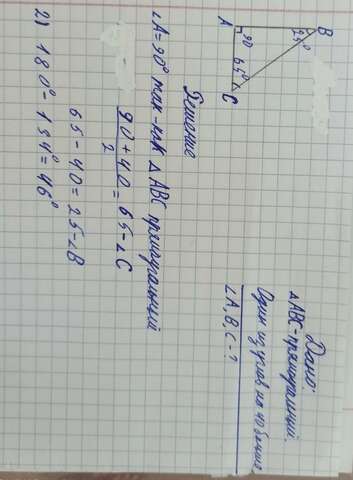 Дано:
△ABC-прямоугольный.
Один из углов на 40 больше
∠A, B, C - ?
A
B
C
90
25°
65°
Решение
∠A = 90° так-как △ABC прямоугальный
90 + 40 / 2 = 65 - ∠C
65 - 40 = 25 - ∠B
2) 180° - 134° = 46°